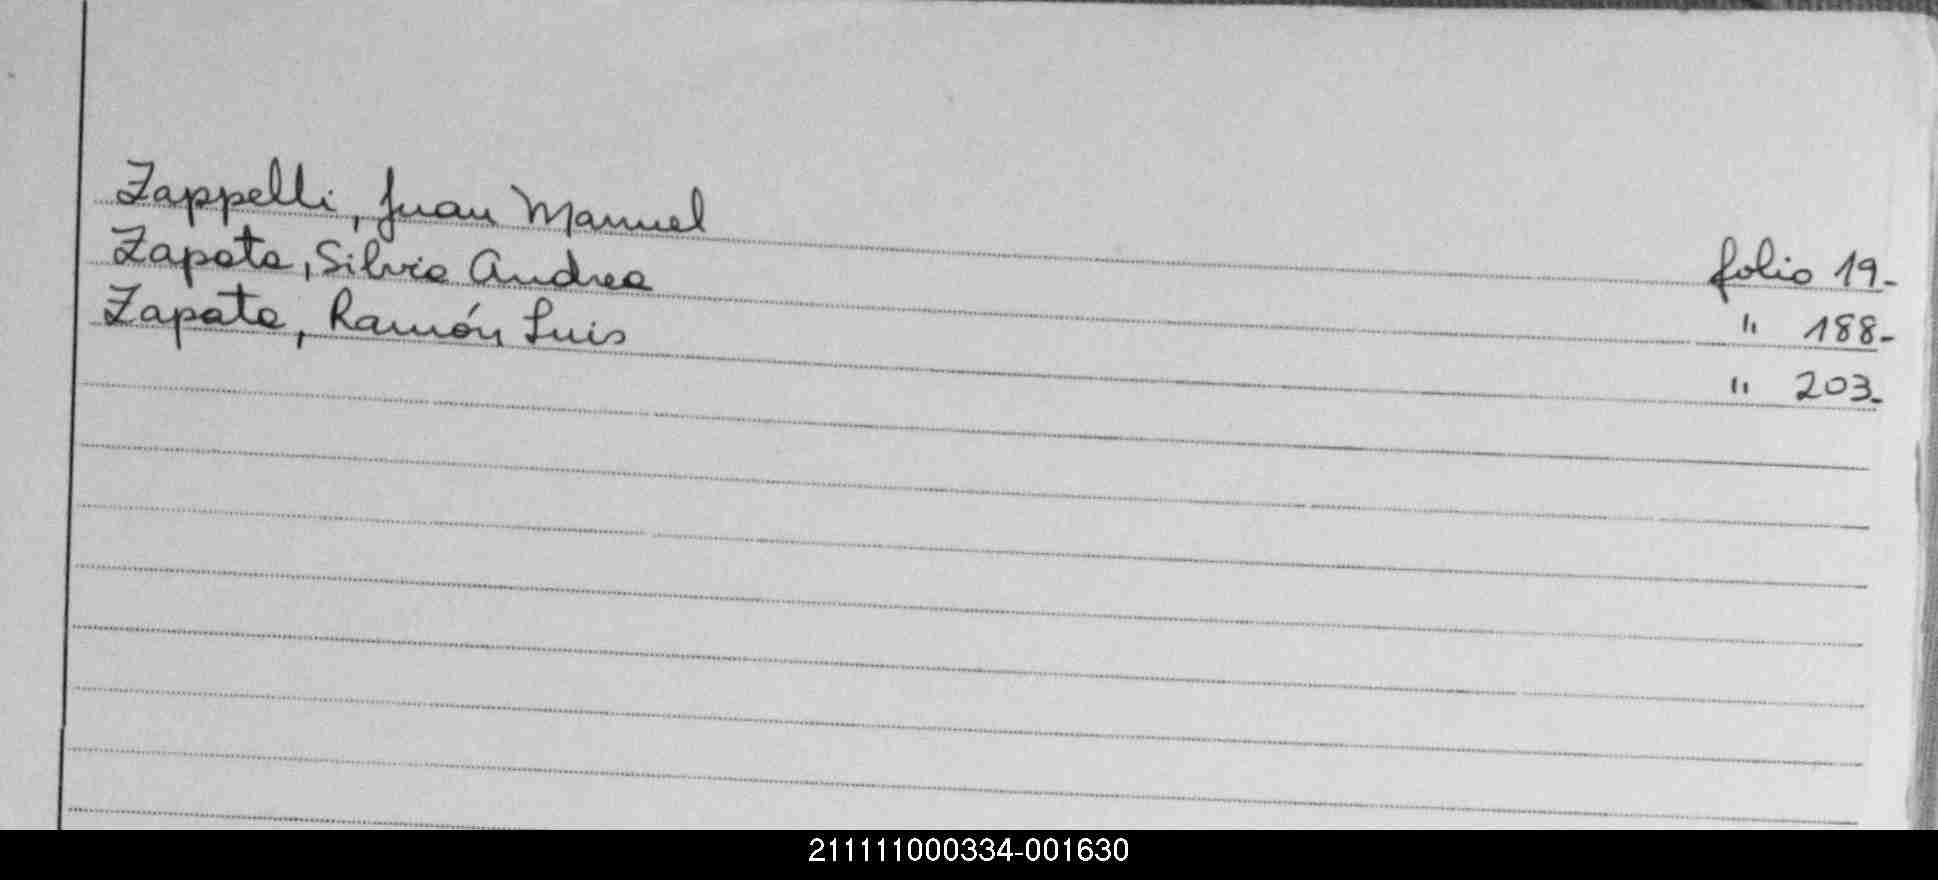 Zappelli, Juan Manuel folio 19-
Zapata, Silvia Andrea " 188-
Zapata, Ramón Luis " 203-
211111000334-001630